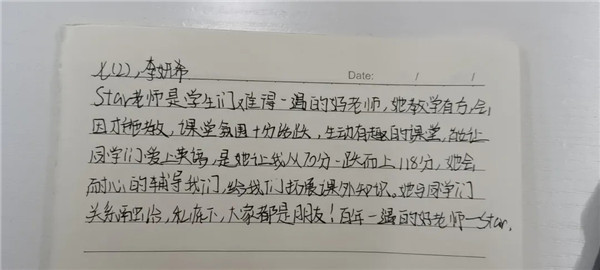 七(2),李妍希
Date: / /
Star老师是学生们难得一遇的好老师,她教学有方,会
因才施教,课堂氛围十分活跃,生动有趣的课堂,她让
同学们爱上英语,是她让我从70分一跃而上118分,她会
耐心的辅导我们,给我们拓展课外知识。她与同学们
关系融洽,私底下,大家都是朋友!百年一遇的好老师—Star.